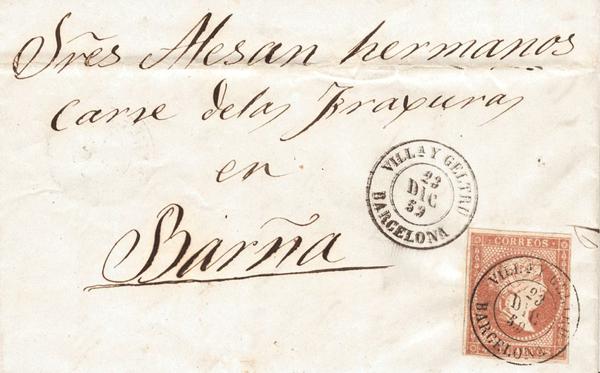 Sres Alesan hermanos
Carre de las Traxuras
en
VILLA Y GELTRU
23
DIC
59
BARCELONA
Barña
CORREOS
VILLA Y GELTRU
23
DIC
59
BARCELONA